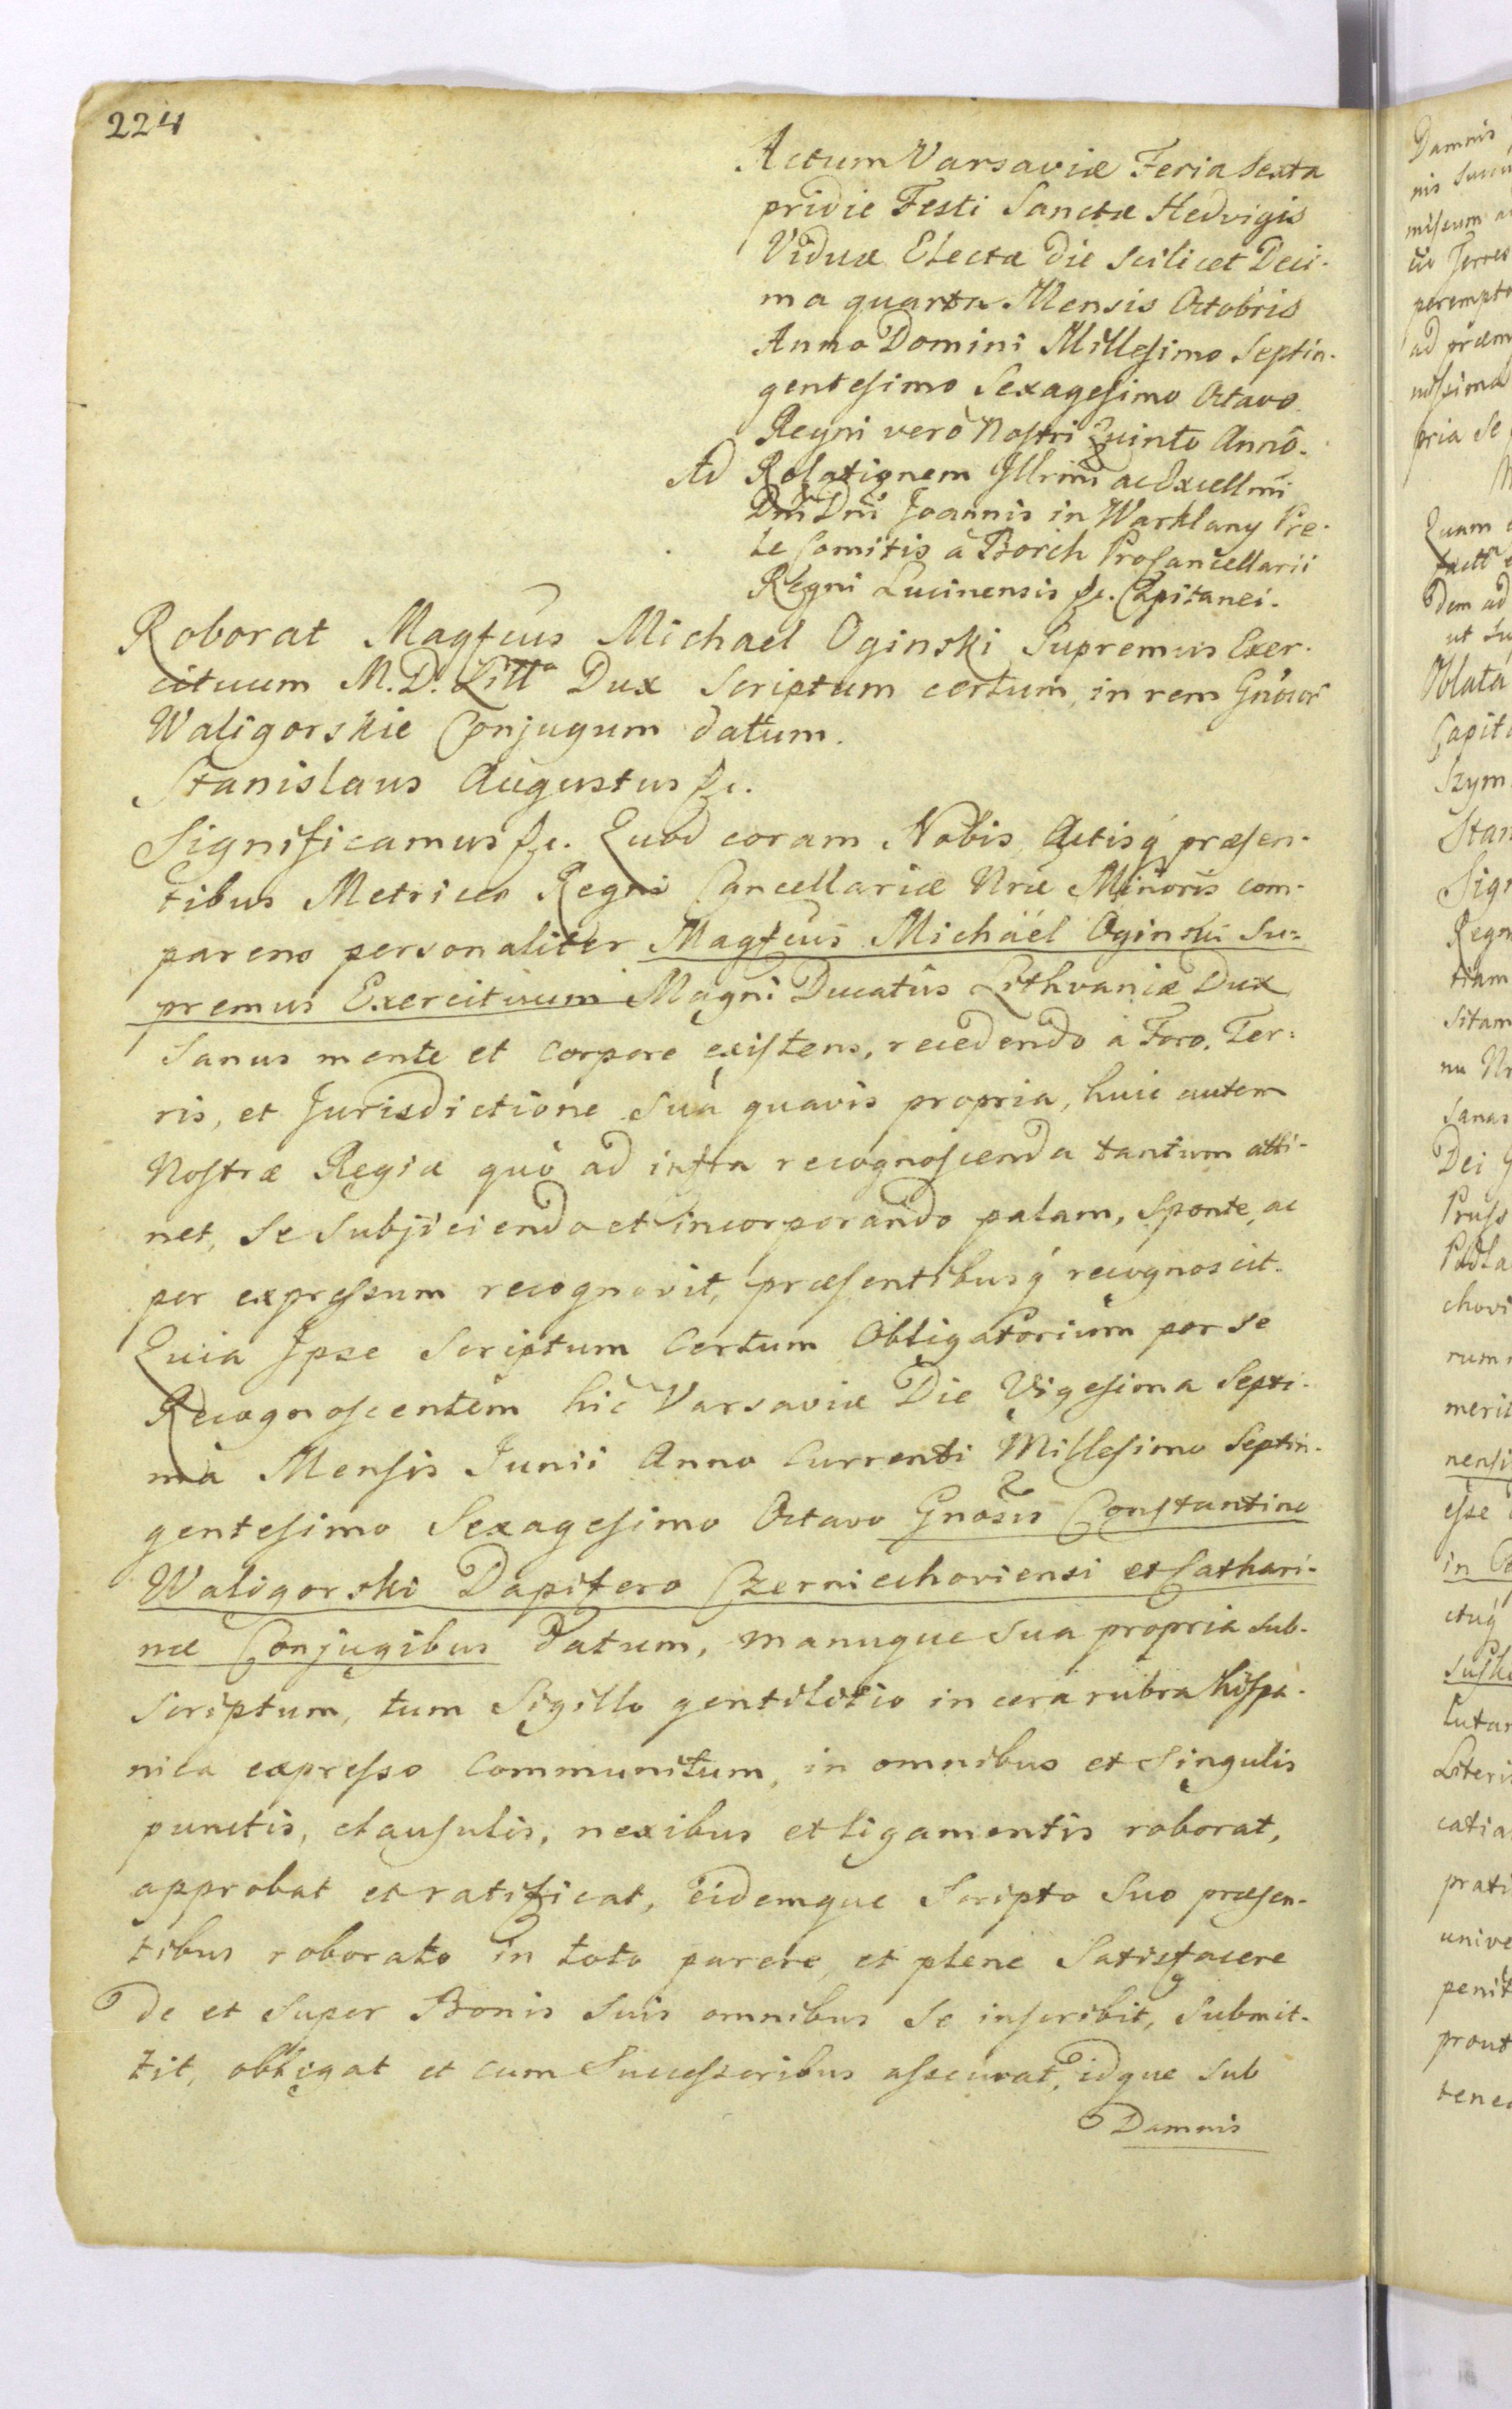 224
Actum Varsaviæ Feria Sexta
pridie Festi Sanctæ Hedvigis
Viduæ Electæ die scilicet Deci-
ma quarta Mensis Octobris
Anno Domini Millesimo Septin-
gentesimo Sexagesimo Octavo
Regni verò Nostri Quinto Annô.
Ad Relationem Illrmi ac Excellmi
Dni Dni Joannis in Warklany Pre-
le Comitis a Borch Procancellarii
Regni Lucinensis &c. Capitanei.
Roborat Magfcus Michael Oginski Supremus Exer-
cituum M. D. Litt Dux Scriptum certum, in rem Gnosor
Waligorskie Conjugum datum.
Stanislaus Augustus &c.
Significamus &c. Quod coram Nobis Actisq præsen-
tibus Metrices Regni Cancellariæ Nræ Minoris com-
parens personaliter Magfcus Michäel Oginski Su-
premus Exercituum Magni Ducatûs Lithvaniæ Dux
Sanus mente et corpore existens, recedendo à Foro, Ter-
ris, et Jurisdictione suâ quavis propria, huic autem
Nostræ Regiæ quò ad infra recognoscenda tantum atti-
net, se subjiciendo et incorporando palam, sponte, ac
per expressum recognovit, præsentibusq recognoscit.
Quia Ipse Scriptum Certum Obligatorium per se
Recognoscentem hic Varsaviæ Die Vigesima Septi-
mâ Mensis Junii Anno Currenti Millesimo Septin-
gentesimo Sexagesimo Octavo Gnosis Constantino
Waligorski Dapifero Czerniechoviensi et Cathari-
næ Conjugibus datum, manuque sua propria sub-
scriptum, tum Sigillo gentilitio in cera rubra hispa-
nica expresso communitum, in omnibus et Singulis
punctis, clausulis, nexibus et ligamentis roborat,
approbat et ratificat, eidemque Scripto Suo præsen-
tibus roborato in toto parere, et plene Satisfacere
de et super Bonis suis omnibus se inscribit, submit-
tit, obligat et cum Successoribus assecurat, idque sub
Damnis